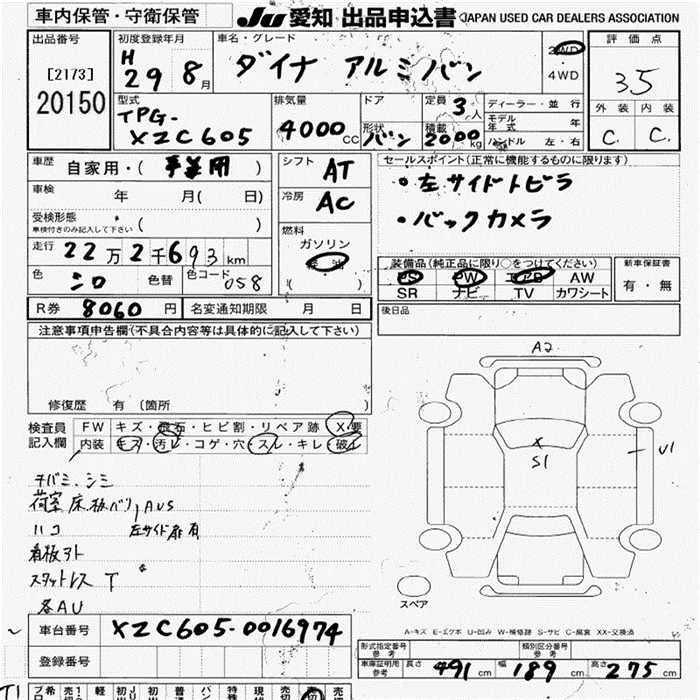 車内保管・守衛保管
JU愛知 出品申込書 JAPAN USED CAR DEALERS ASSOCIATION
出品番号
[2173]
20150
初度登録年月
H 29 8月
車名・グレード
ダイナ アルミバン
2WD
4WD
評価点
3.5
外装 内装
C. C.
型式
TPG-
XZC605
排気量
4000cc
ドア
形状 バン
定員 3人
積載 2000kg
ディーラー・並行
モデル年式 年
ハンドル 左・右
車歴 自家用・( 事業用 )
車検 年 月( 日)
受検形態
車検付きのみ記入して下さい ( )
走行 22万2千693km
色 シロ 色替 色コード 058
シフト AT
冷房 AC
燃料
ガソリン
軽油
( )
セールスポイント(正常に機能するものに限ります)
・左サイドトビラ
・バックカメラ
装備品(純正品に限り○をつけてください)
PS PW エアB AW
SR ナビ TV カワシート
新車保証書
有・無
R券 8060円 名変通知期限 月 日
後日品
注意事項申告欄(不具合内容等は具体的に記入して下さい)
修復歴 有 (箇所 )
検査員
記入欄
FW キズ・飛石・ヒビ割・リペア跡 X要
内装 キズ・汚レ・コゲ・穴・スレ・キレ・破レ
チバミ、シミ
荷室床板ベリ,AUS
ハコ 左サイド扉有
看板アト
スタットレス T
各AU
A2
X
S1
U1
スペア
A-キズ E-エクボ U-凹み W-補修跡 S-サビ C-腐食 XX-交換済
車台番号 XZC605-0016974
登録番号
型式指定番号
参考
類別区分番号
参考
車庫証明用
参考
長さ 491cm 幅 189cm 高さ 275cm